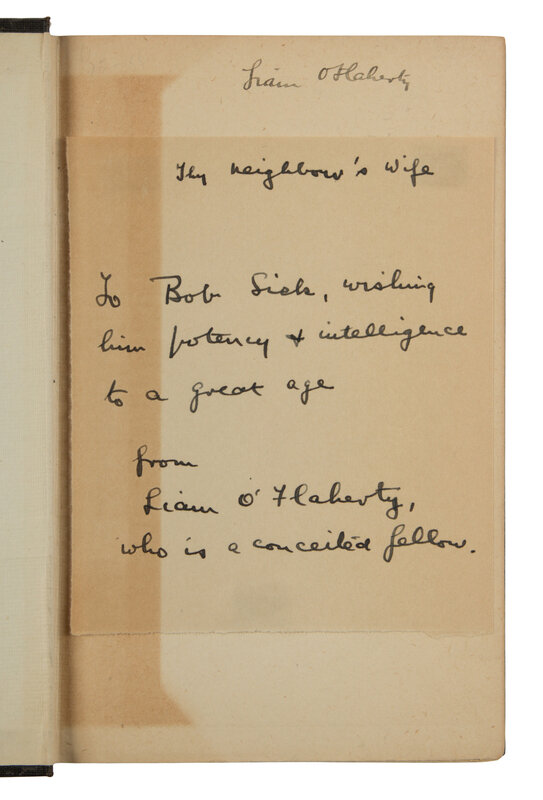 Liam O'Flaherty
Thy Neighbour's Wife
To Bob Sick, wishing
him potency & intelligence
to a great age
from
Liam O'Flaherty,
who is a conceited fellow.